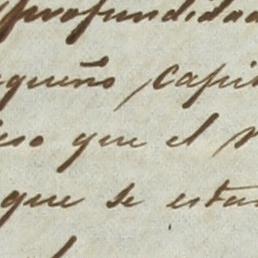 profundidad
equeño, capi
eso que el
que se estu